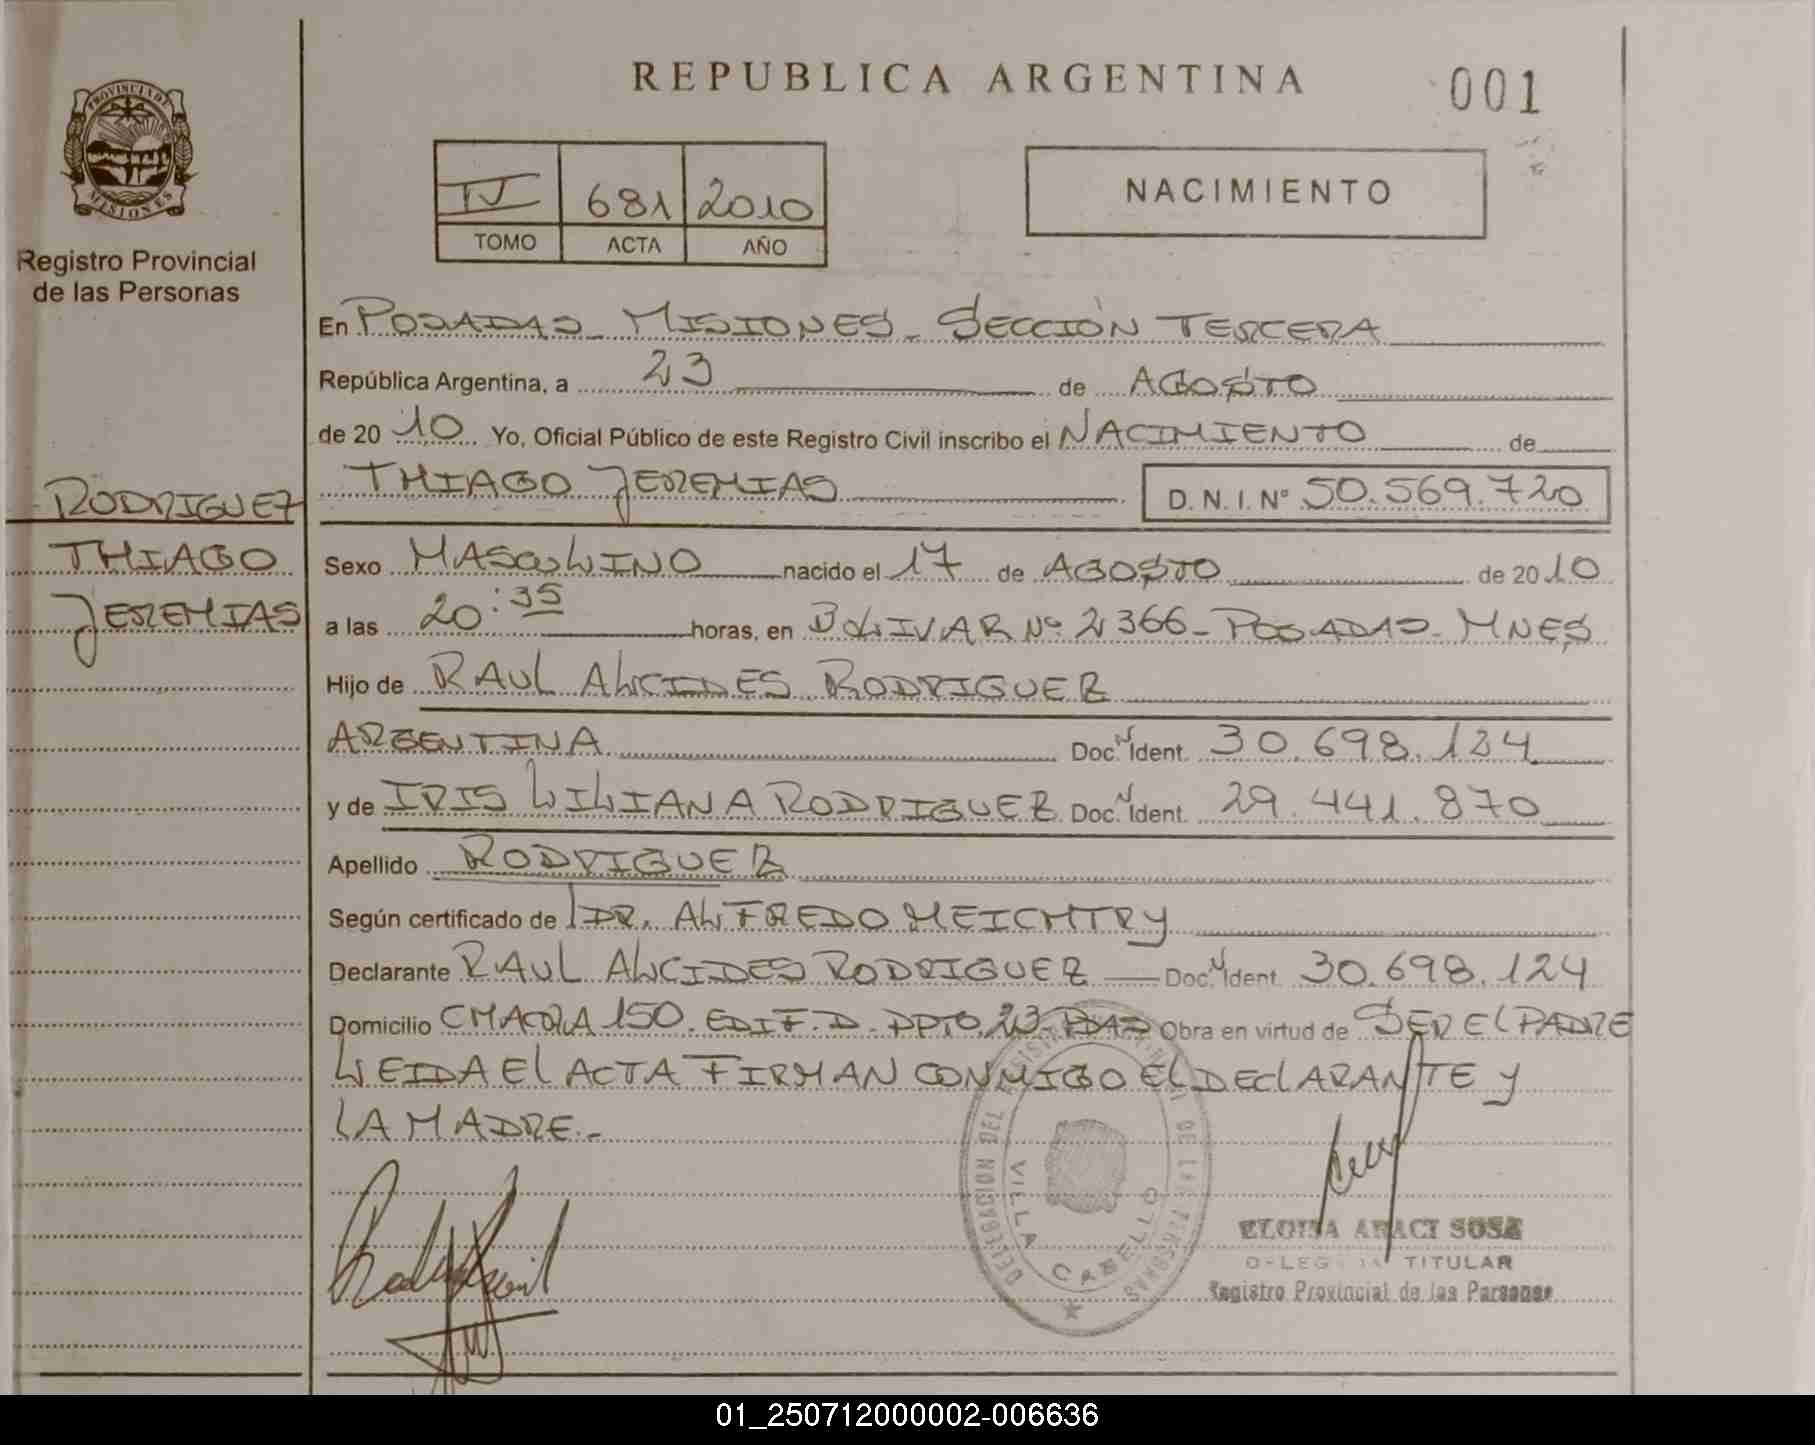 REPUBLICA ARGENTINA
001
PROVINCIA DE
MISIONES
Registro Provincial
de las Personas
IV 681 2010
TOMO ACTA AÑO
NACIMIENTO
En POSADAS - MISIONES - SECCIÓN TERCERA
República Argentina, a 23 de AGOSTO
de 20 10 Yo, Oficial Público de este Registro Civil inscribo el NACIMIENTO de
THIAGO JEREMIAS D. N. I. Nº 50.569.720
RODRIGUEZ
THIAGO
JEREMIAS
Sexo MASCULINO nacido el 17 de AGOSTO de 20 10
a las 20:35 horas, en BOLIVAR Nº 2366 - POSADAS - MNES
Hijo de RAUL ALCIDES RODRIGUEZ
ARGENTINA Doc. Ident. 30.698.124
y de IRIS LILIANA RODRIGUEZ Doc. Ident. 29.441.870
Apellido RODRIGUEZ
Según certificado de DR. ALFREDO MEICHTRY
Declarante RAUL ALCIDES RODRIGUEZ Doc. Ident. 30.698.124
Domicilio CHACRA 150. EDIF. D. DPTO. 23 - PDAS Obra en virtud de SER EL PADRE
LEIDA EL ACTA FIRMAN CONMIGO EL DECLARANTE Y
LA MADRE.-
DELEGACION DEL REGISTRO DE LAS PERSONAS
VILLA CABELLO
ELOISA ARACI SOSA
TITULAR
Registro Provincial de las Personas
01_250712000002-006636